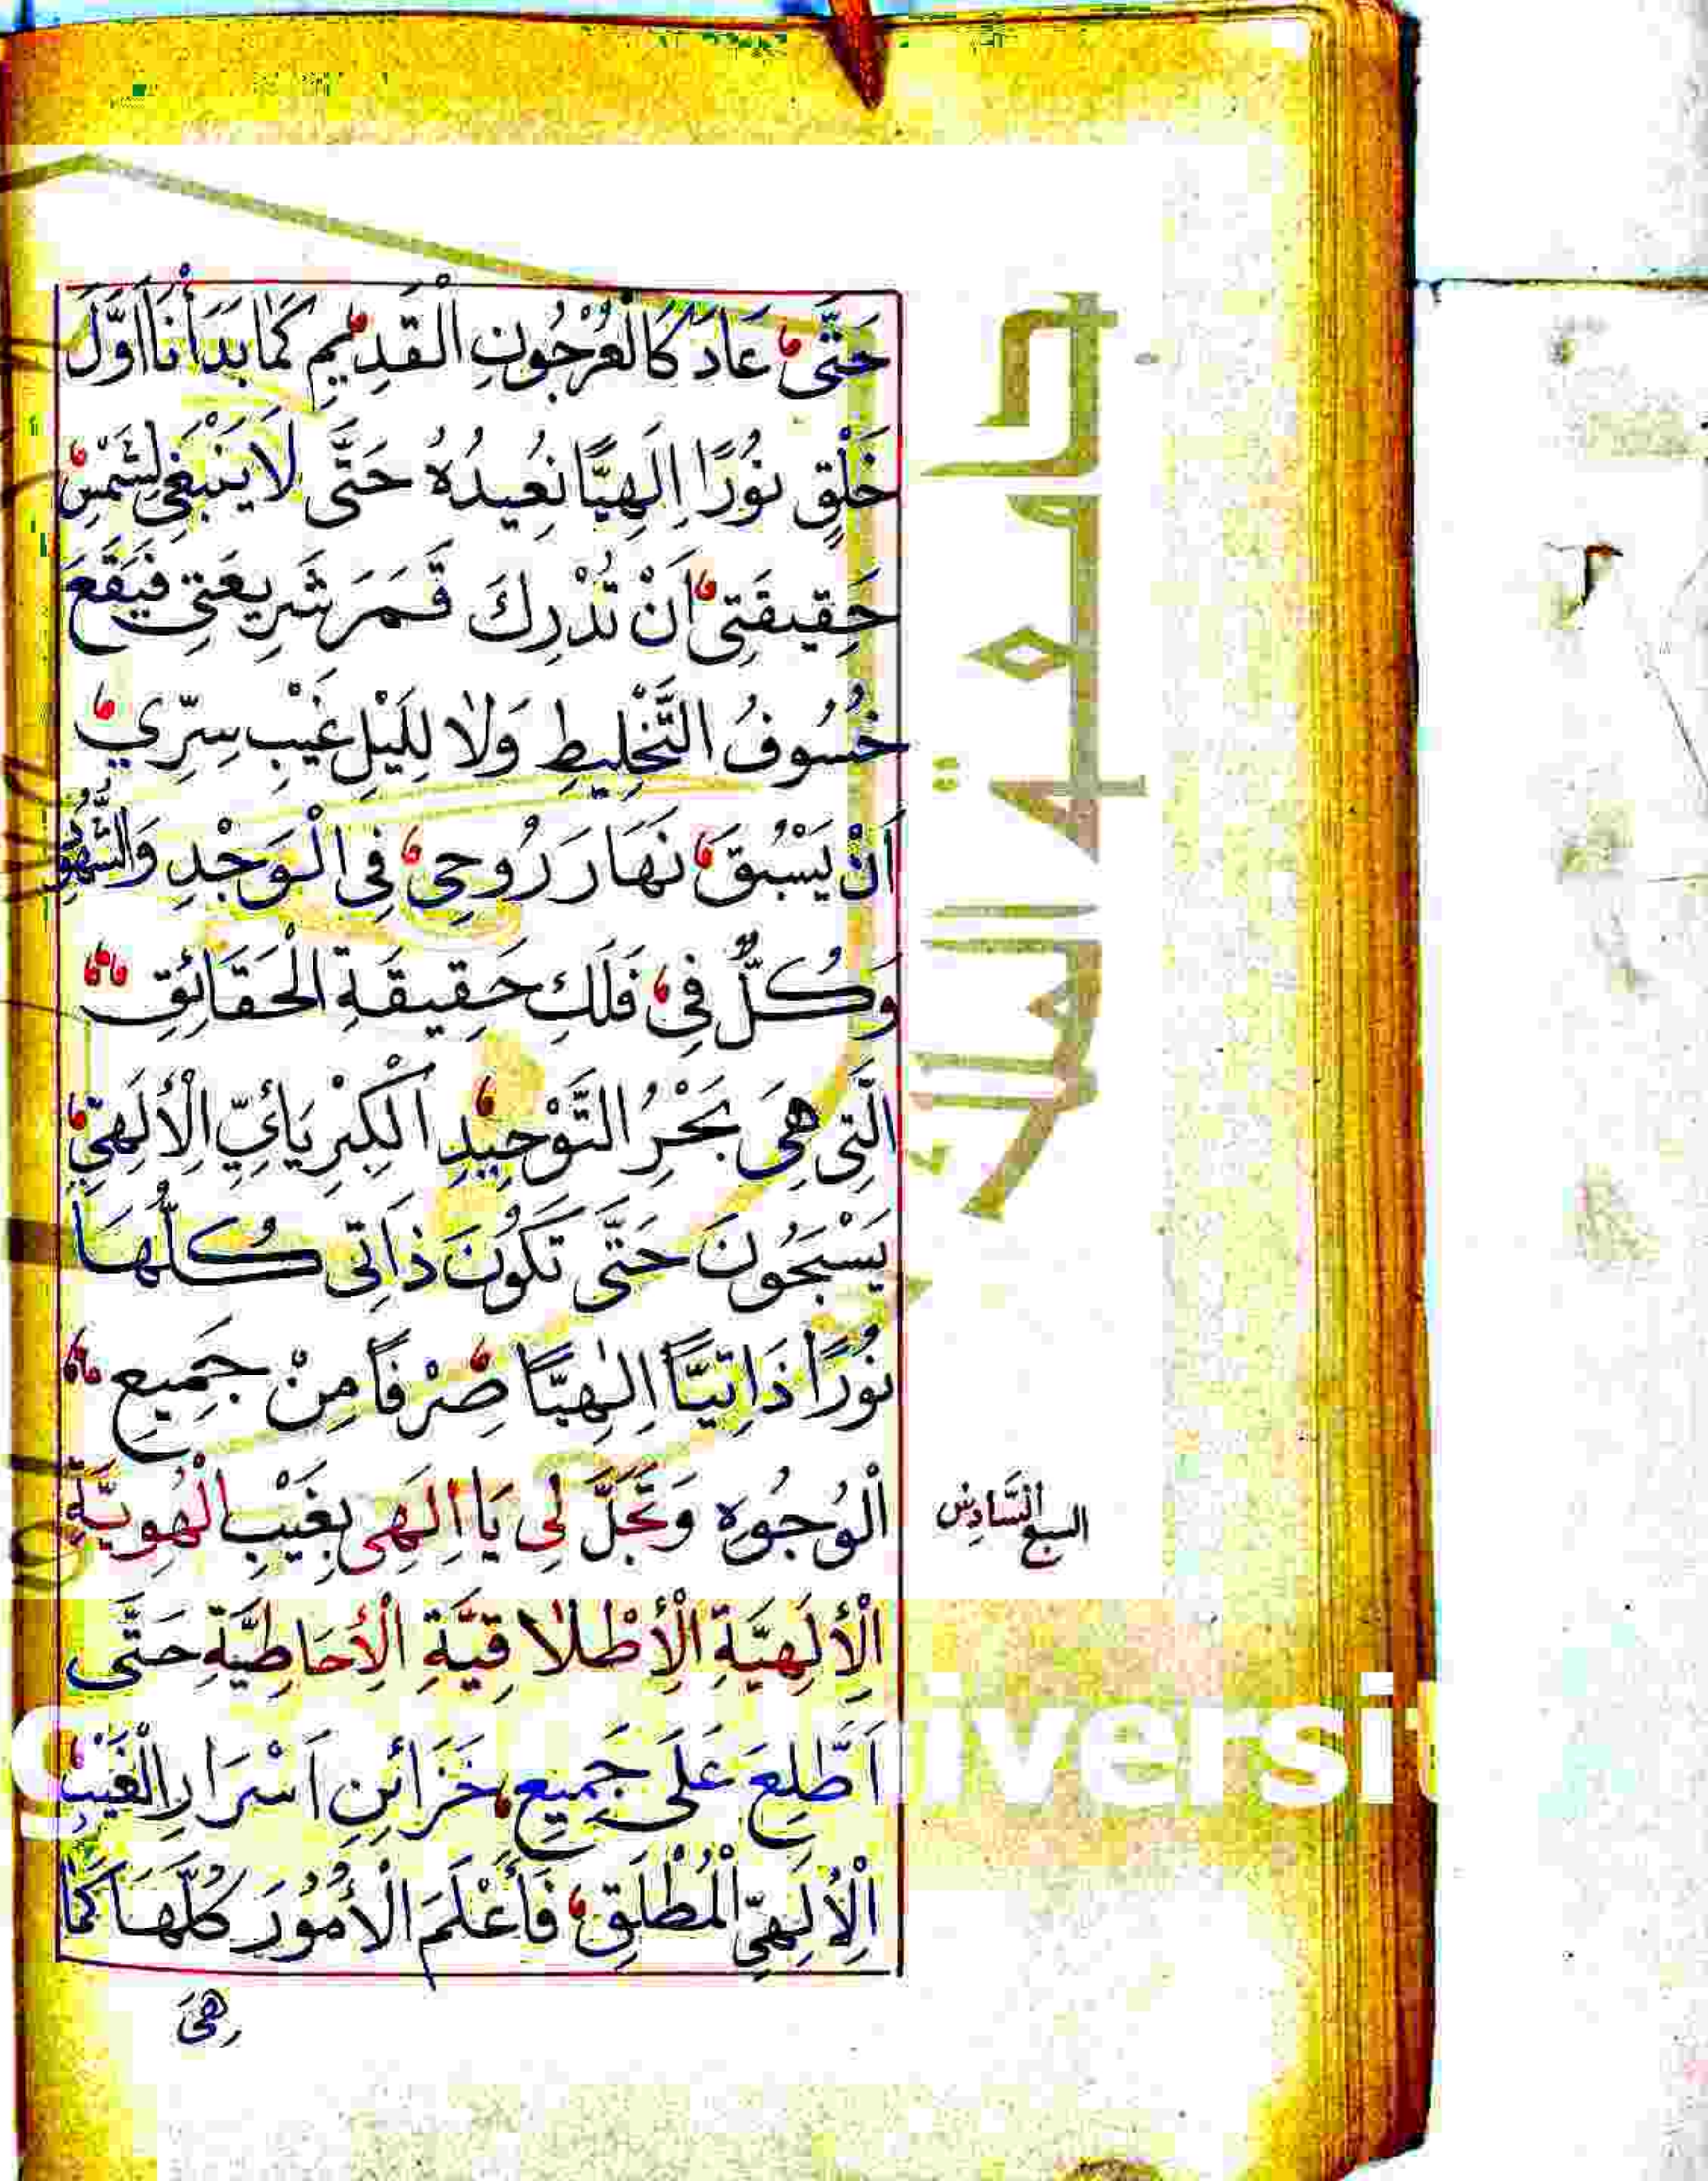 حَتَّى عَادَ كَالْعُرْجُونِ الْقَدِيمِ كَمَا بَدَأْنَا اَوَّلَ
خَلْقٍ نُورًا اِلَهِيًّا نُعِيدُهُ حَتَّى لَا يَنْبَغِي لِشَمْسِ
حَقِيقَتِي اَنْ تُدْرِكَ قَمَرَ شَرِيعَتِي فَيَقَعَ
خُسُوفُ التَّخْلِيطِ وَلَا لِلَيْلِ غَيْبِ سِرِّي
اَنْ يَسْبُقَ نَهَارَ رُوحِي فِي الْوَجْدِ وَالشُّهُو
وَكُلٌّ فِي فَلَكِ حَقِيقَةِ الْحَقَائِقِ
الَّتِي هِيَ بَحْرُ التَّوْحِيدِ اَلْكِبْرِيَائِيِّ الْأِلَهِيِّ
يَسْبَحُونَ حَتَّى تَكُونَ ذَاتِي كُلُّهَا
نُورًا ذَاتِيًّا اِلٰهِيًّا صِرْفًا مِنْ جَمِيعِ
الْوُجُوهِ وَتَجَلَّ لِي يَا اِلَهِي بِغَيْبِ الْهُوِيَّةِ
السبع السَّادِسُ
الْأِلَهِيَّةِ الْأِطْلَاقِيَّةِ الْأِحَاطِيَّةِ حَتَّى
اَطَّلِعَ عَلَى جَمِيعِ خَزَائِنِ اَسْرَارِ الْغَيْبِ
الْأِلَهِيِّ الْمُطْلَقِ فَأَعْلَمَ الْأُمُورَ كُلَّهَا كَمَا
هِيَ
جامعة الملك
iversit